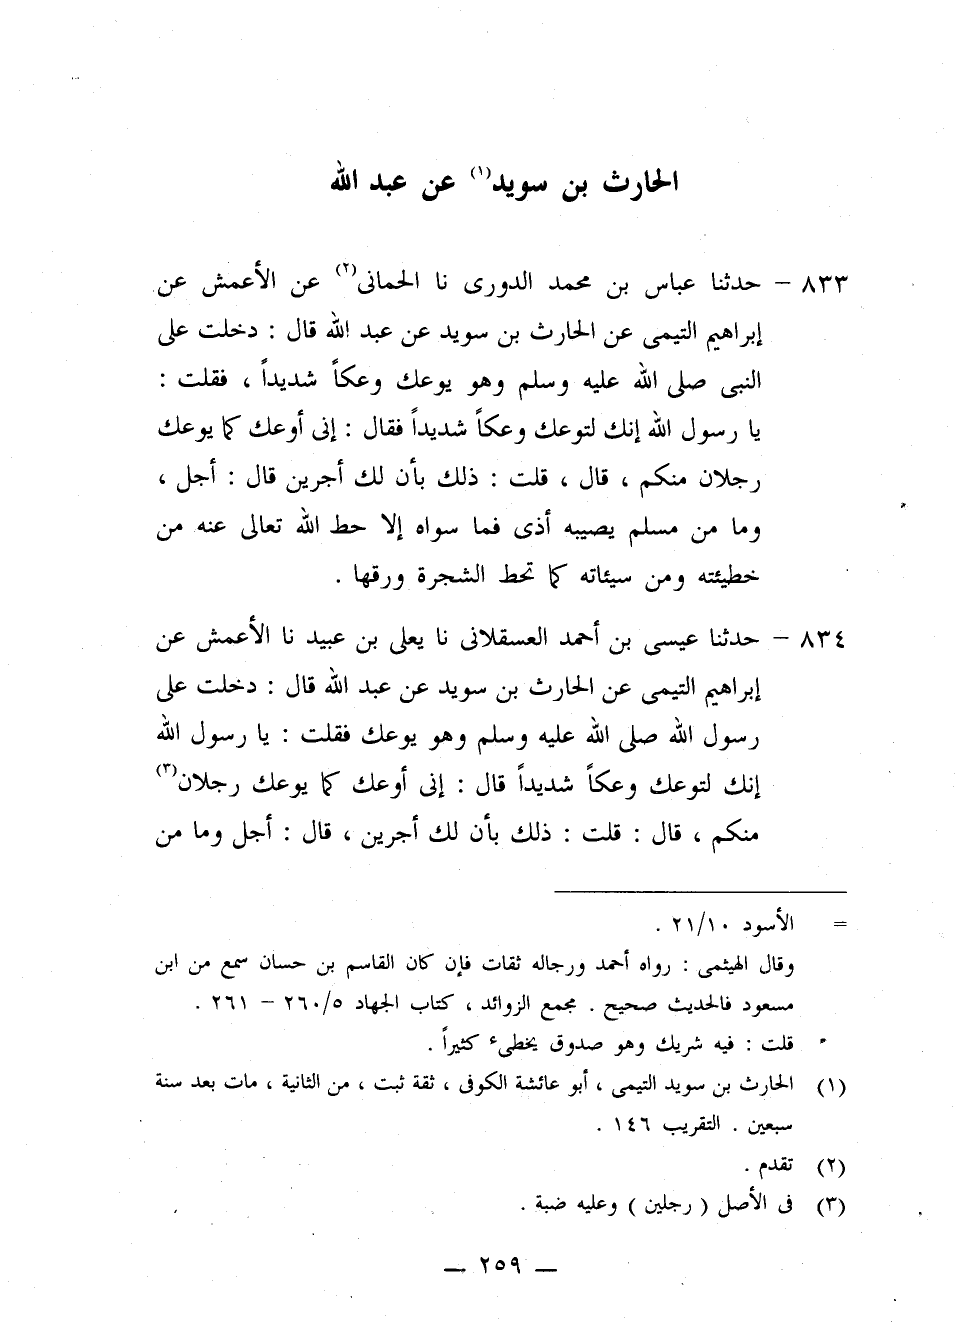 الحارث بن سويد(١) عن عبد الله
٨٣٣ – حدثنا عباس بن محمد الدورى نا الحمانى(٢) عن الأعمش عن
إبراهيم التيمى عن الحارث بن سويد عن عبد الله قال : دخلت على
النبى صلى الله عليه وسلم وهو يوعك وعكاً شديداً ، فقلت :
يا رسول الله إنك لتوعك وعكاً شديداً فقال : إنى أوعك كما يوعك
رجلان منكم ، قال ، قلت : ذلك بأن لك أجرين قال : أجل ،
وما من مسلم يصيبه أذى فما سواه إلا حط الله تعالى عنه من
خطيئته ومن سيئاته كما تحط الشجرة ورقها .
٨٣٤ – حدثنا عيسى بن أحمد العسقلانى نا يعلى بن عبيد نا الأعمش عن
إبراهيم التيمى عن الحارث بن سويد عن عبد الله قال : دخلت على
رسول الله صلى الله عليه وسلم وهو يوعك فقلت : يا رسول الله
إنك لتوعك وعكاً شديداً قال : إنى أوعك كما يوعك رجلان(٣)
منكم ، قال : قلت : ذلك بأن لك أجرين ، قال : أجل وما من
= الأسود ٢١/١٠ .
وقال الهيثمى : رواه أحمد ورجاله ثقات فإن كان القاسم بن حسان سمع من ابن
مسعود فالحديث صحيح . مجمع الزوائد ، كتاب الجهاد ٢٦٠/٥ – ٢٦١ .
* قلت : فيه شريك وهو صدوق يخطىء كثيراً .
(١) الحارث بن سويد التيمى ، أبو عائشة الكوفى ، ثقة ثبت ، من الثانية ، مات بعد سنة
سبعين . التقريب ١٤٦ .
(٢) تقدم .
(٣) فى الأصل ( رجلين ) وعليه ضبة .
— ٢٥٩ —